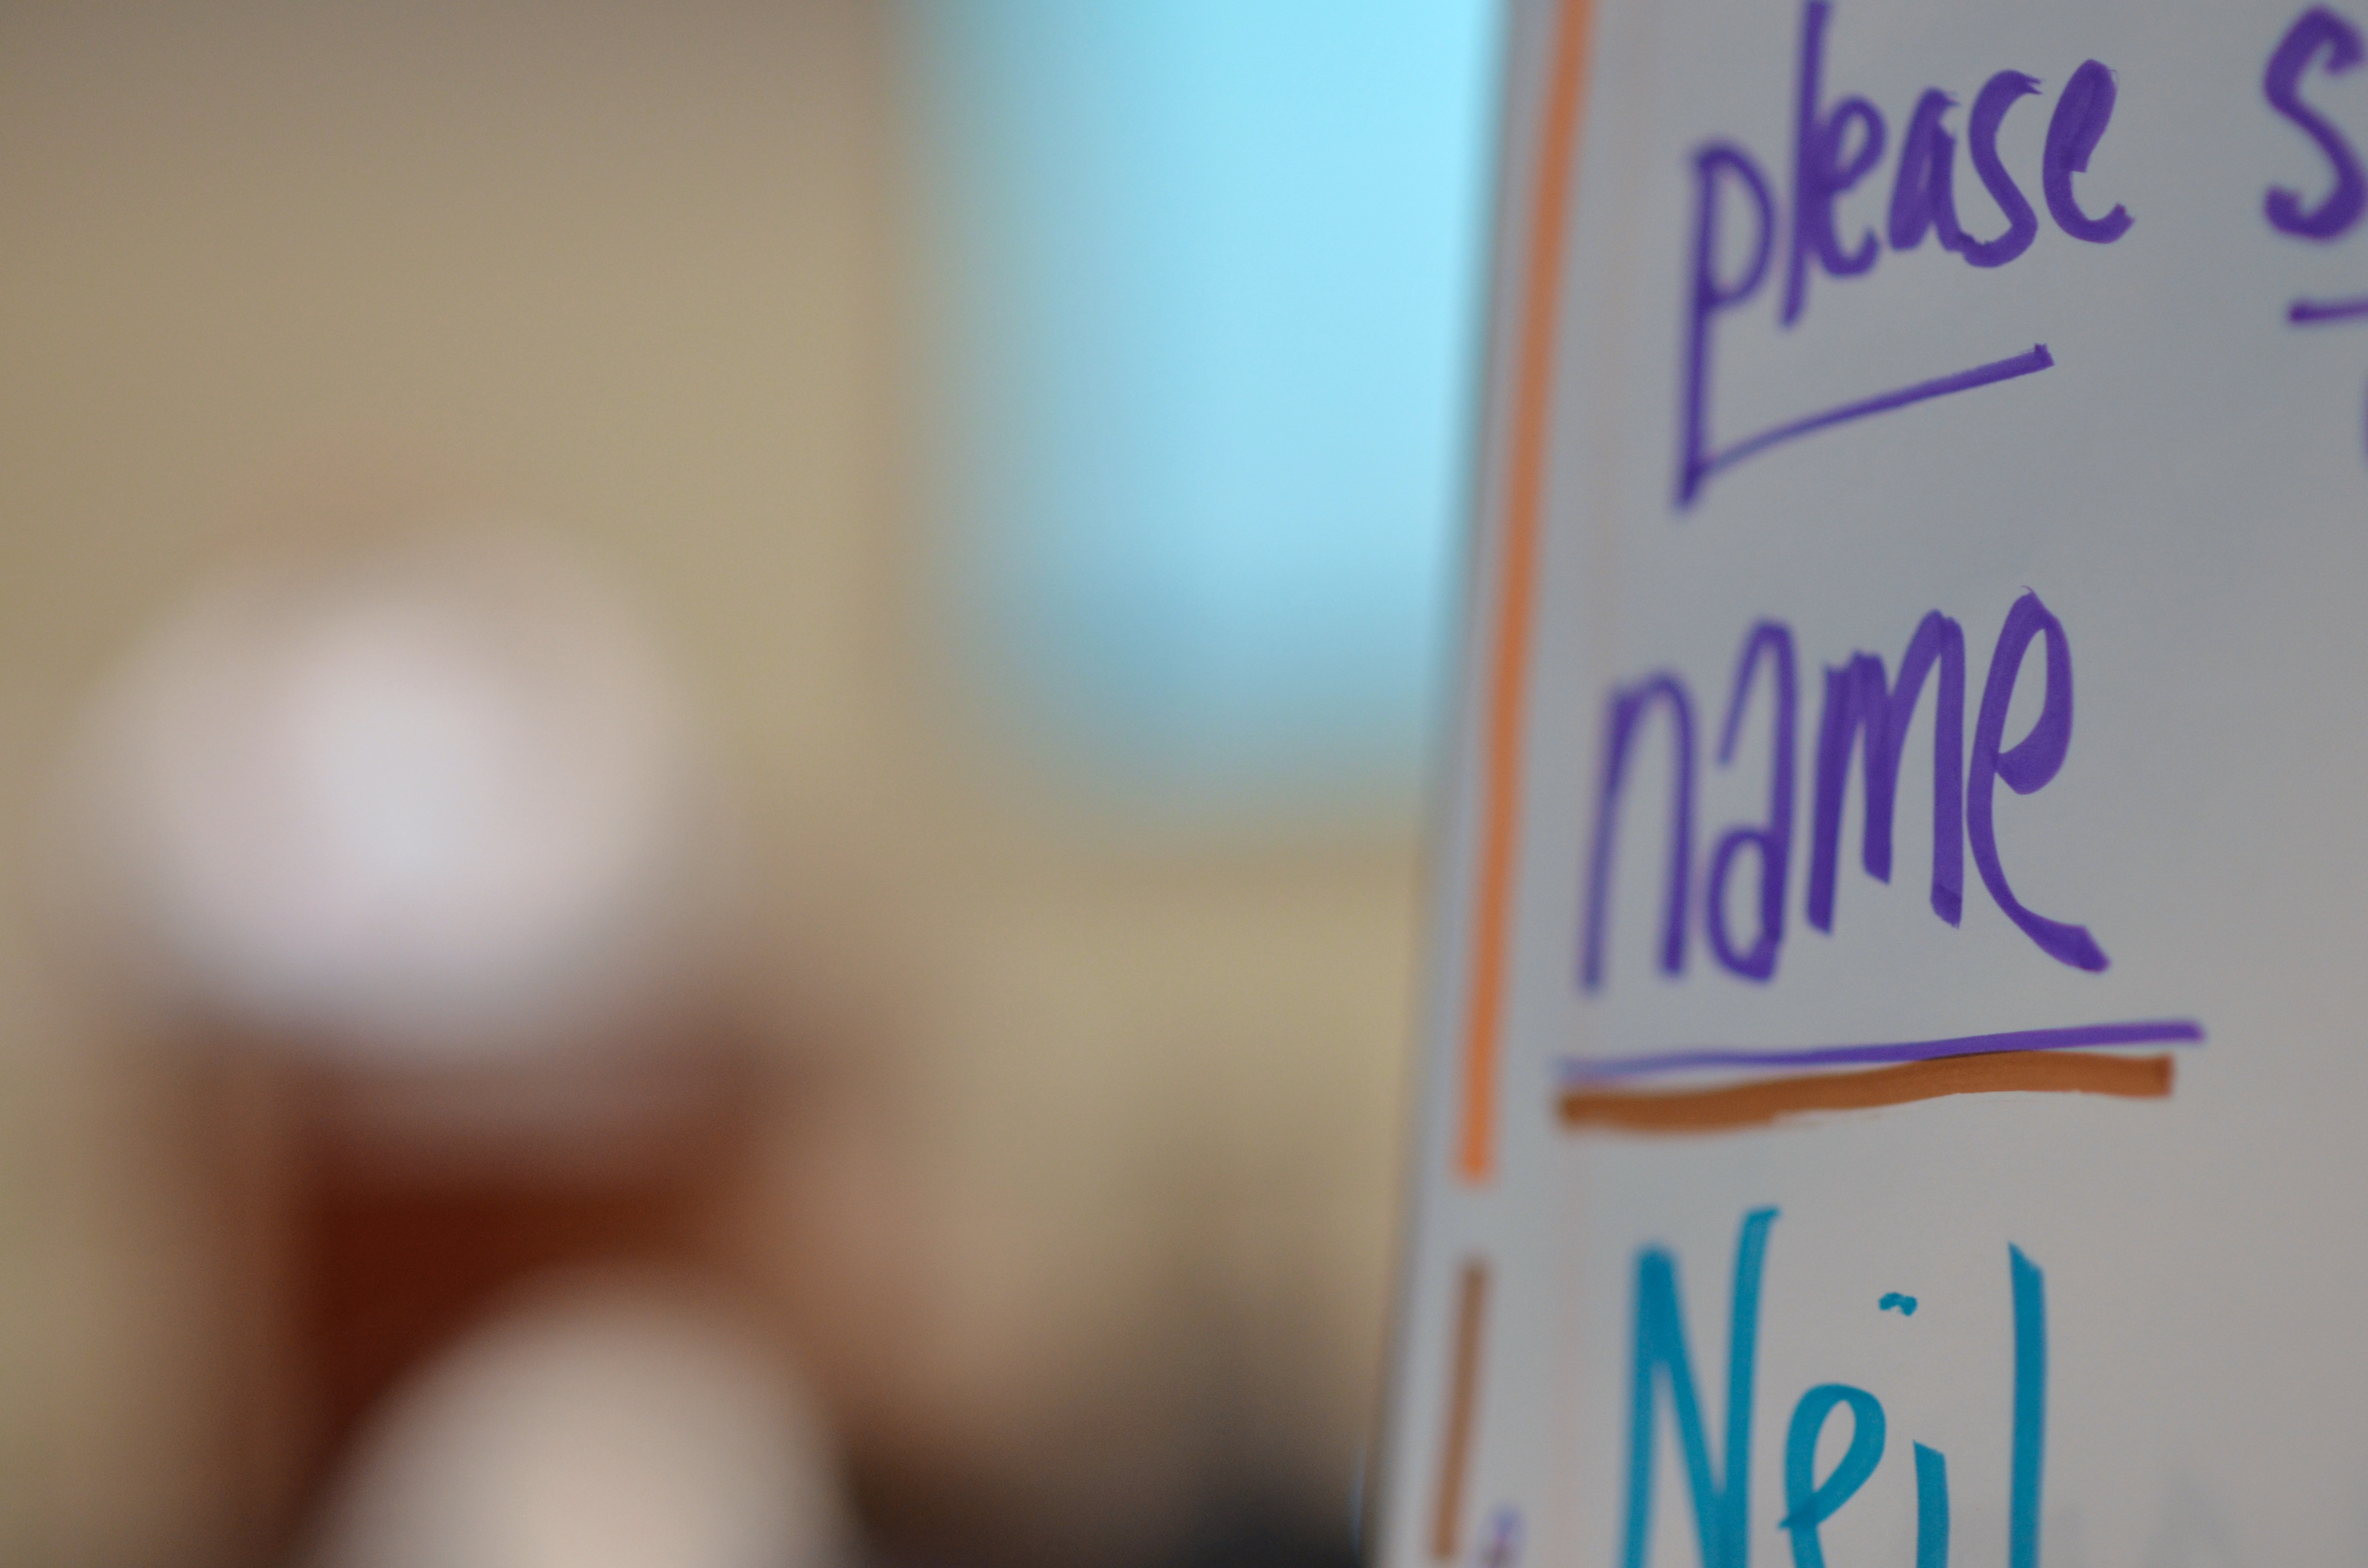 please s
name
Neil